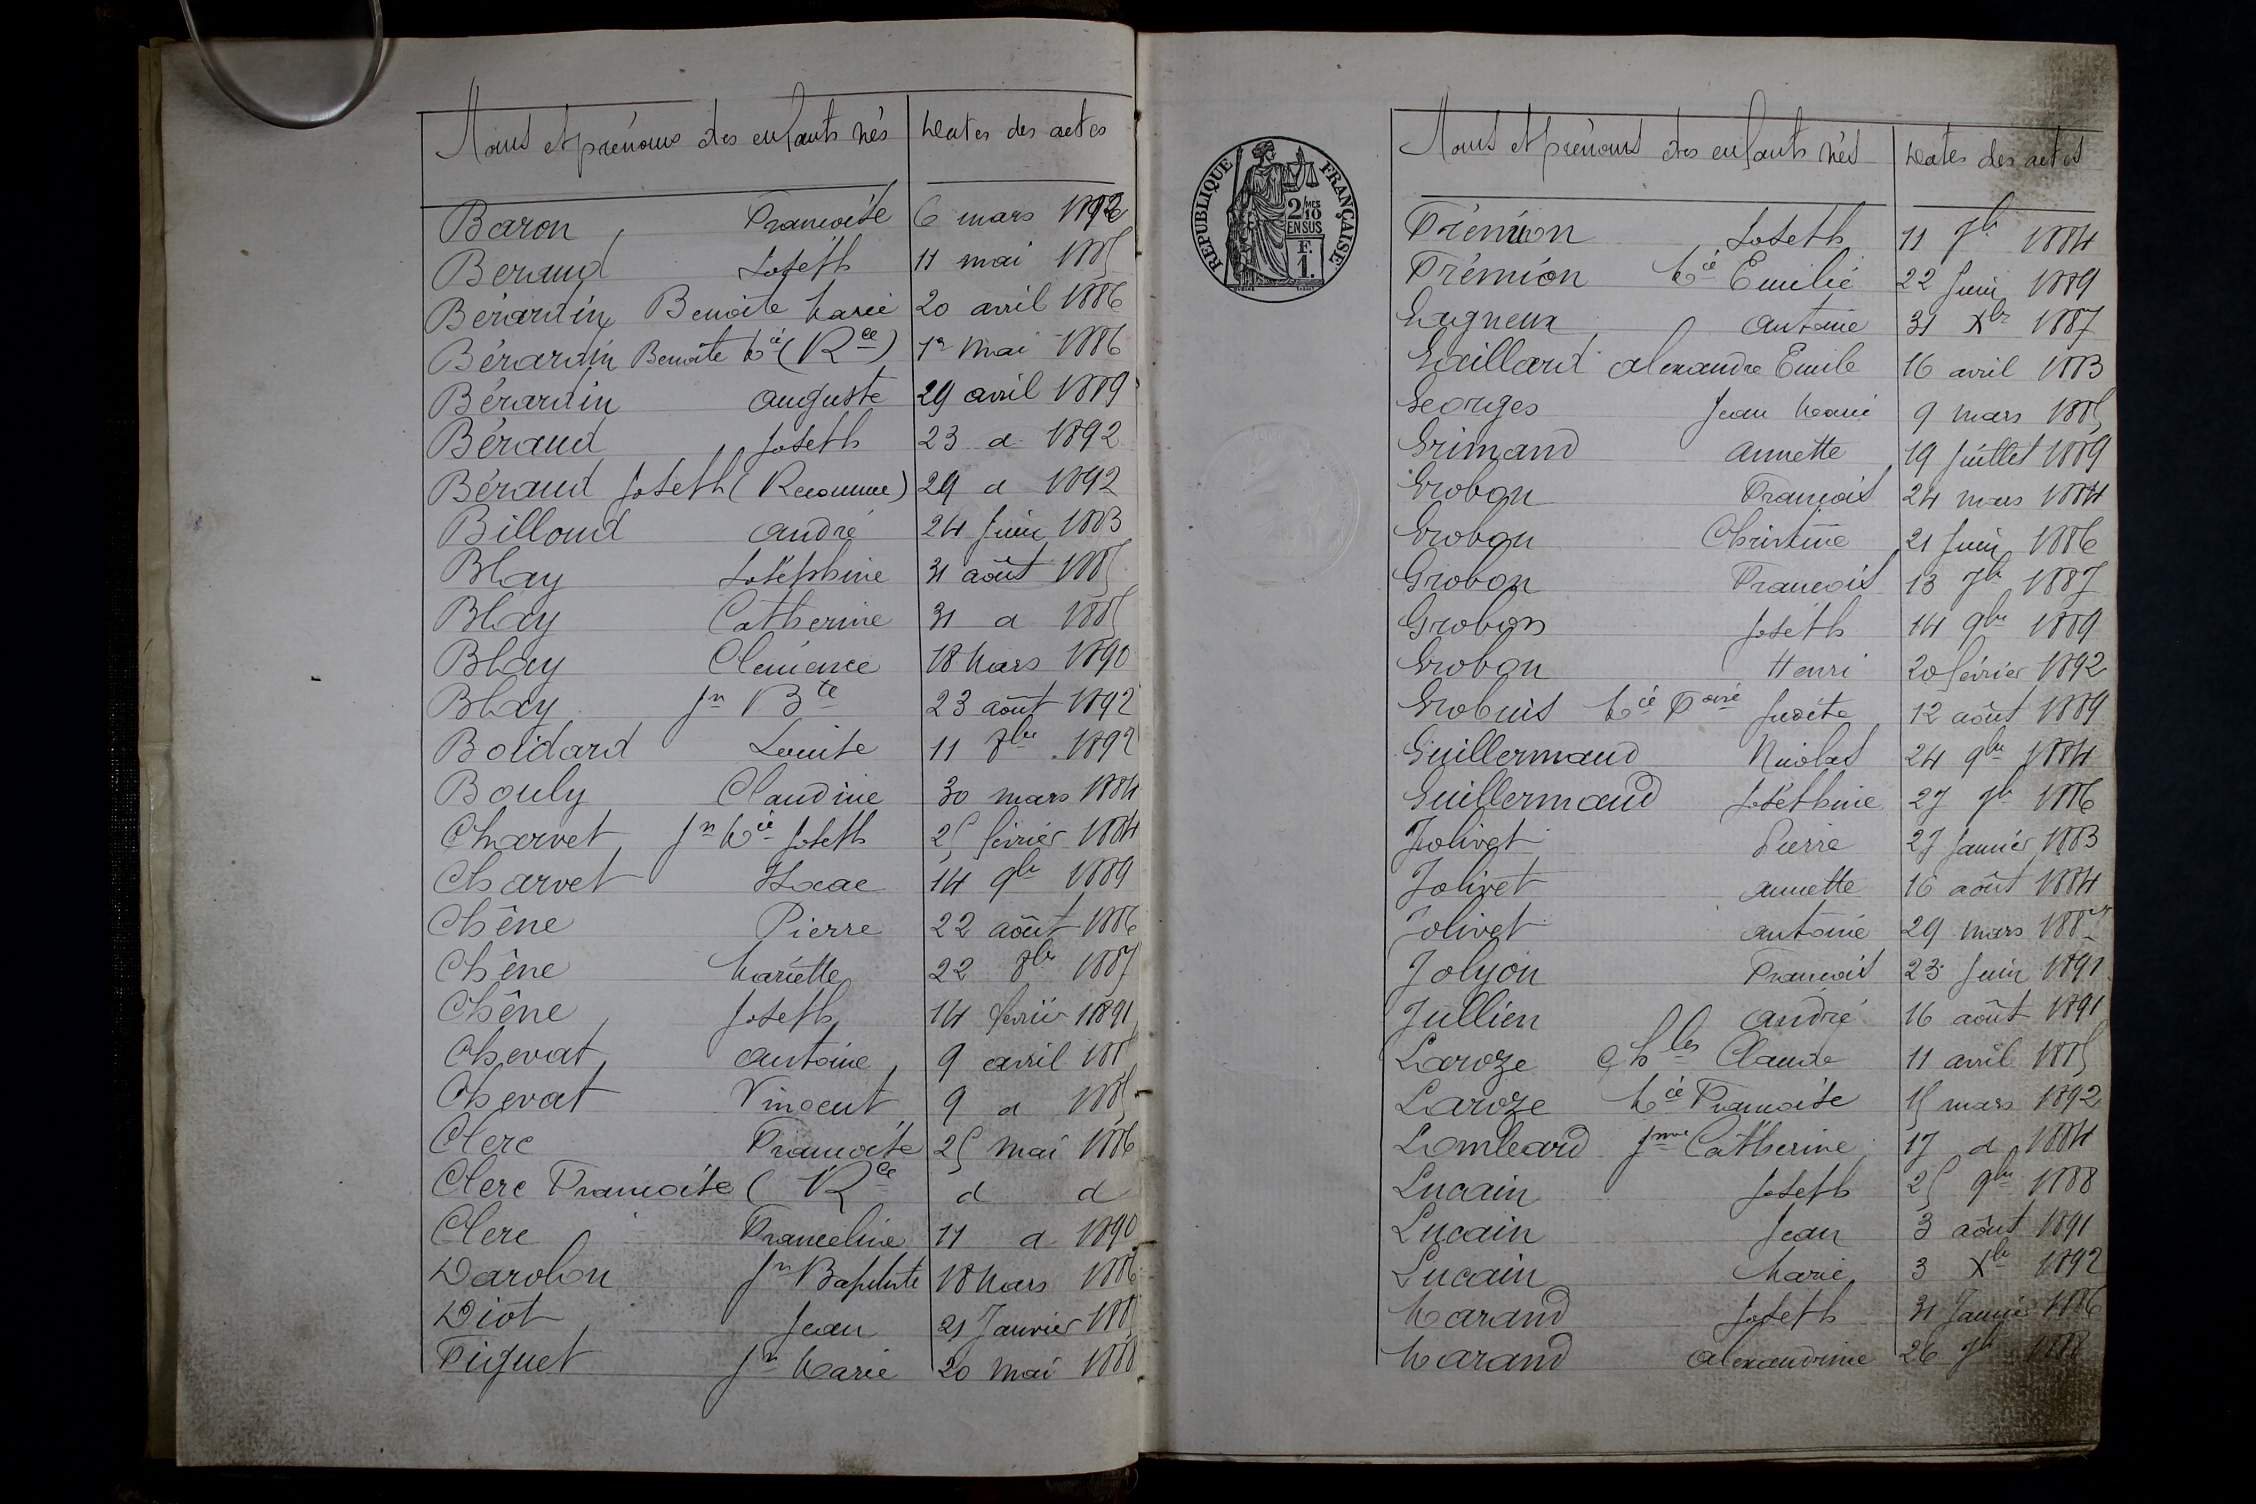 Noms et prénoms des enfants nés Dates des actes
Baron Francoise 6 mars 1892
Beraud Joseph 11 mai 1885
Bérardin Benoite Marie 20 avril 1886
Bérardin Benoite Mie (Rce) 1er Mai 1886
Bérardin Auguste 29 avril 1889
Béraud Joseph 23 d 1892
Béraud Joseph (Reconnue) 29 d 1892
Billoud André 24 Juin 1883
Blay Joséphine 31 août 1885
Blay Catherine 31 d 1885
Blay Clémence 18 Mars 1890
Blay Jn Bte 23 août 1892
Boidard Louise 11 8bre 1892
Bouly Claudine 30 mars 1884
Charvet Jn Mie Joseph 25 février 1884
Charvet Isaac 14 9bre 1889
Chêne Pierre 22 août 1886
Chêne Mariette 22 8bre 1887
Chêne Joseph 14 février 1891
Chevat Antoine 9 avril 1885
Chevat Vincent 9 d 1885
Clerc Francoise 25 Mai 1886
Clerc Francoise (Rce d d
Clerc Franceline 11 d 1890
Darolon Jn Baptiste 18 Mars 1886
Diot Jean 21 Janvier 1885
Fiquet Jn Marie 20 Mai 1888
REPUBLIQUE FRANÇAISE
2/10 MES
EN SUS
F.
1.
Noms et prénoms des enfants nés Dates des actes
Frémion Joseph 11 7bre 1884
Frémion Mie Emilie 22 Juin 1889
Gagneux Antoine 31 Xbre 1887
Gaillard Alexandre Emile 16 avril 1883
Georges Jean Marie 9 mars 1885
Grimand Annette 19 Juillet 1889
Grobon Francois 24 mars 1884
Grobon Christine 21 Juin 1886
Grobon Francois 13 7bre 1887
Grobon Joseph 14 9bre 1889
Grobon Henri 20 février 1892
Grobuis Mie Judite 12 août 1889
Guillermaud Nicolas 24 9bre 1884
Guillermaud Joséphine 27 7bre 1886
Jolivet Pierre 27 Janvier 1883
Jolivet Annette 16 août 1884
Jolivet Antoine 29 mars 1887
Jolyon Francois 23 Juin 1891
Jullien André 16 août 1891
Laroze Chles Claude 11 avril 1885
Laroze Mie Francoise 15 mars 1892
Lombard Jnne Catherine 17 d 1884
Lucain Joseph 25 9bre 1888
Lucain Jean 3 août 1891
Lucain Marie 3 Xbre 1892
Marand Joseph 31 Janvier 1886
Marand Alexandrine 26 7bre 1888